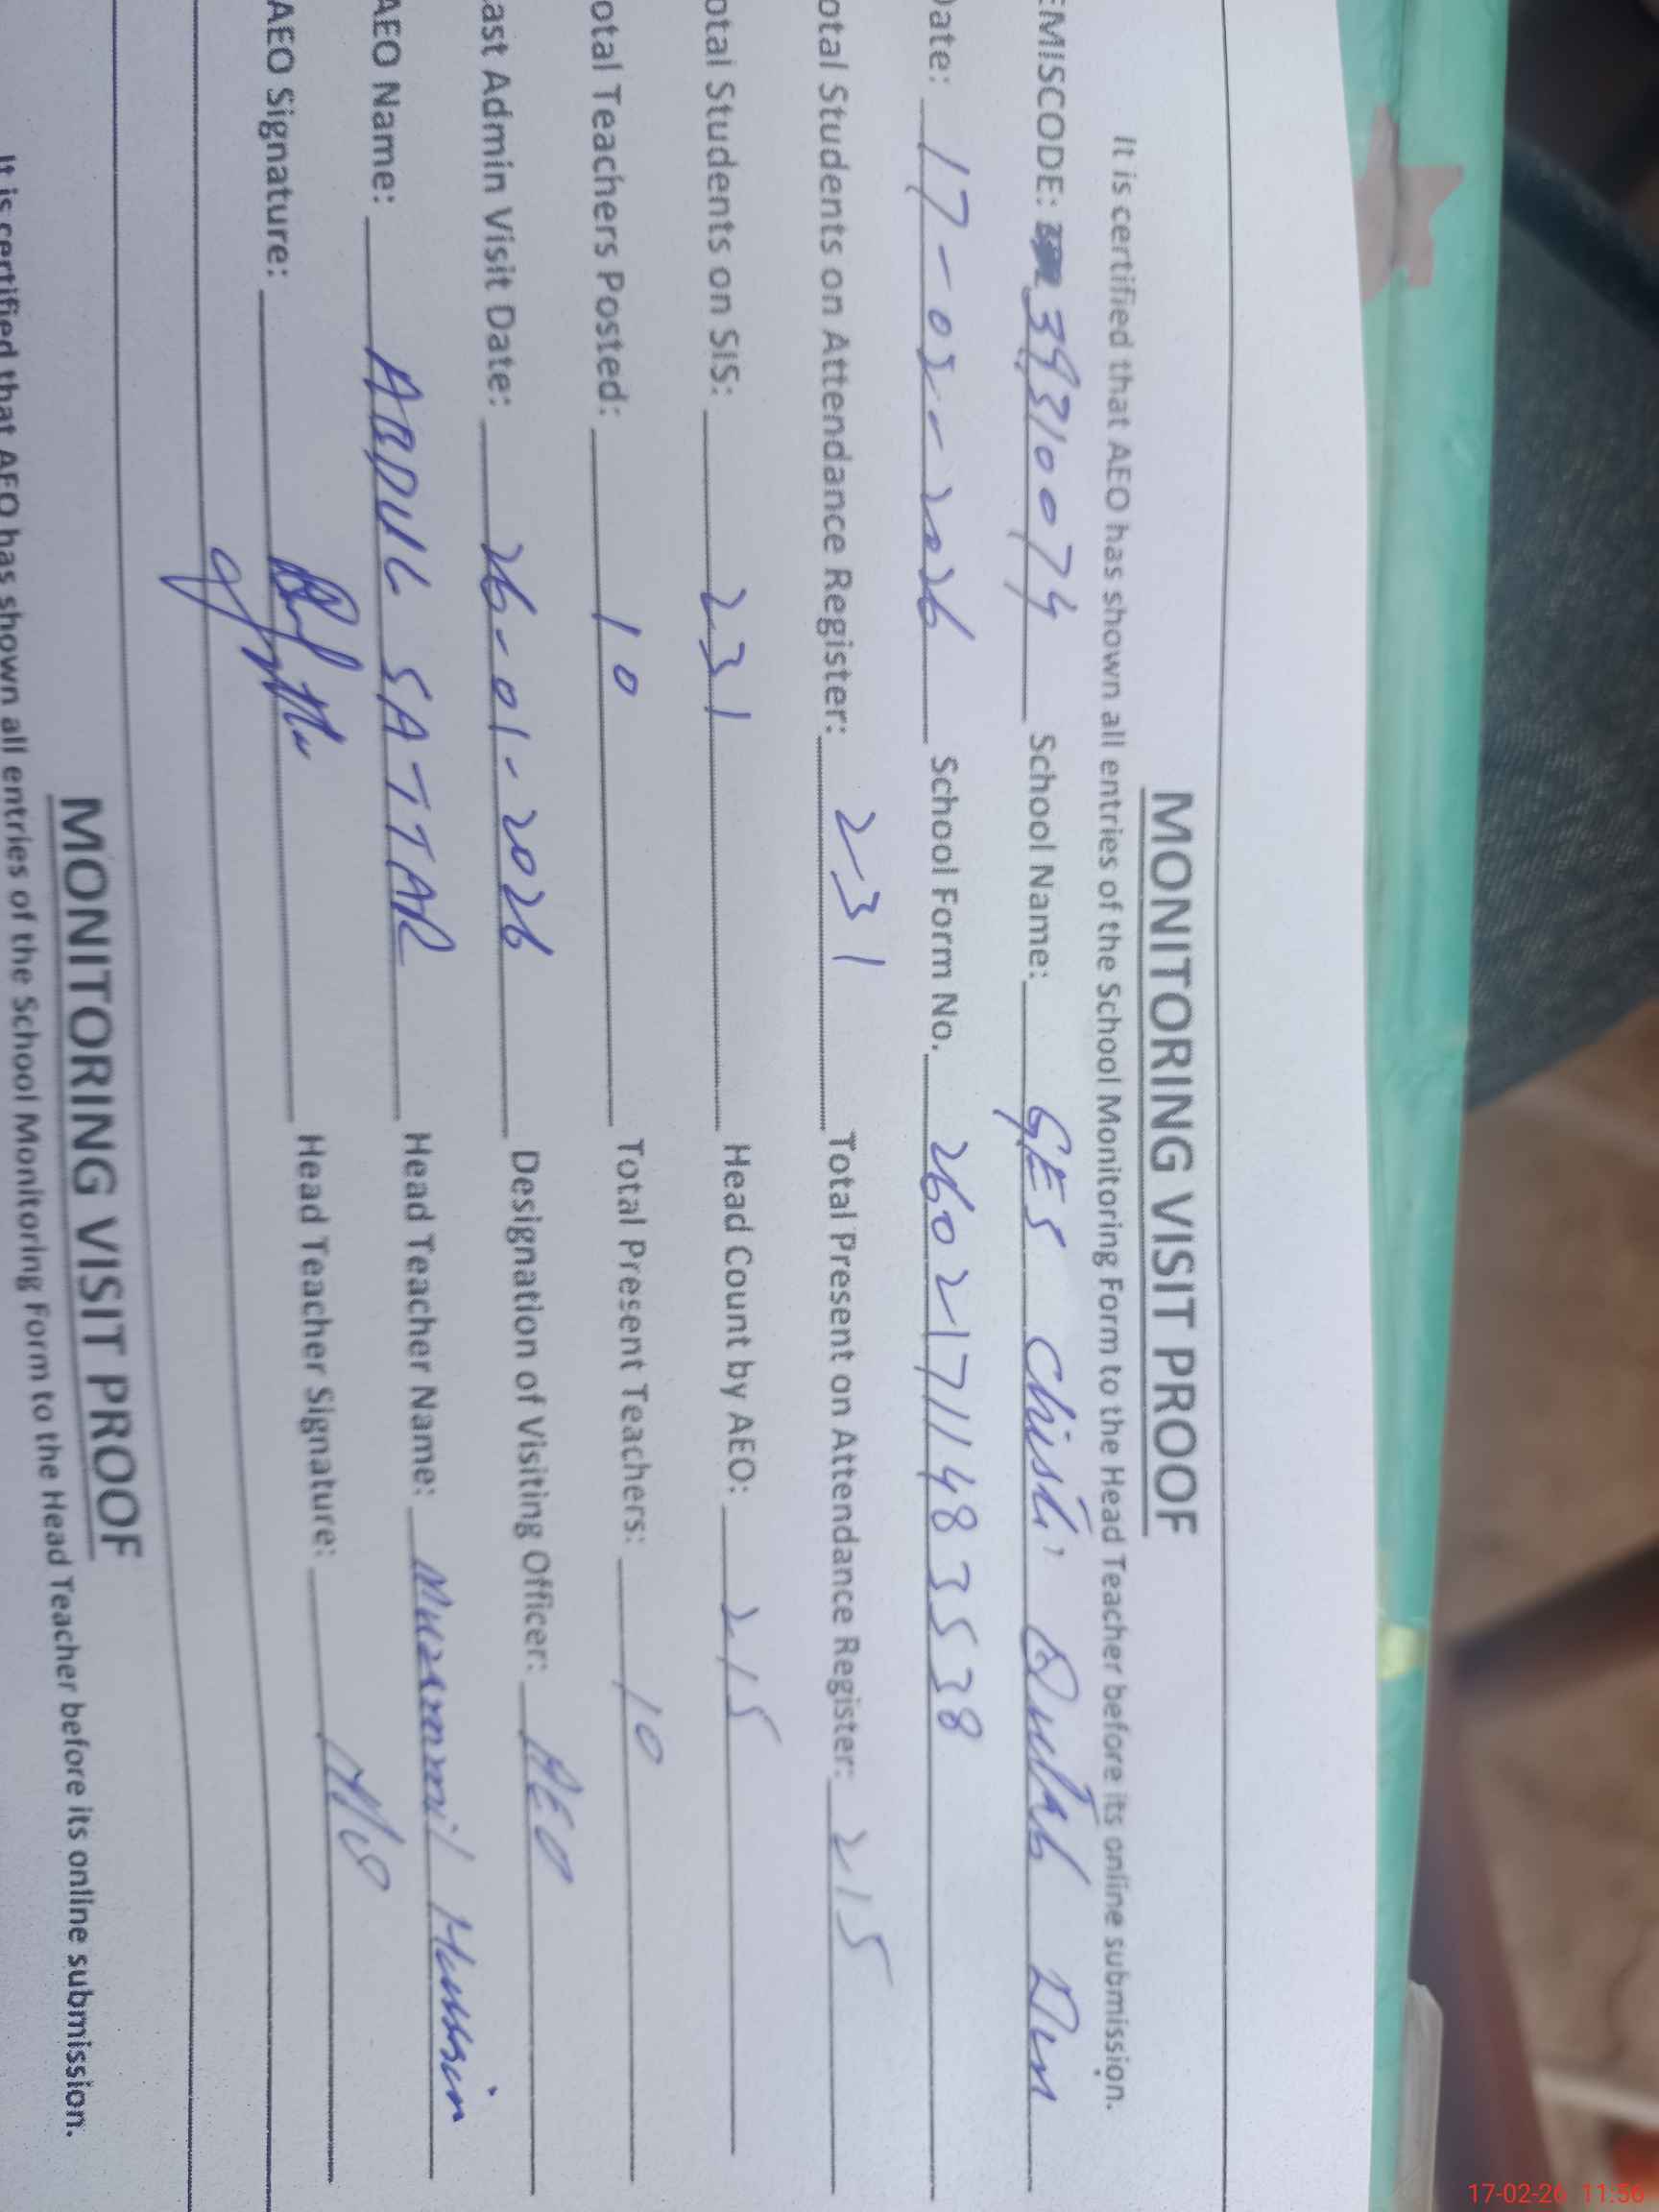 MONITORING VISIT PROOF
It is certified that AEO has shown all entries of the School Monitoring Form to the Head Teacher before its online submission.
EMISCODE: 39310074 School Name: GES Chishti Qutab Din
Date: 17-02-2026 School Form No. 2602171148353 8
otal Students on Attendance Register: 231 Total Present on Attendance Register: 215
otal Students on SIS: 231 Head Count by AEO: 215
otal Teachers Posted: 10 Total Present Teachers: 10
ast Admin Visit Date: 26-01-2026 Designation of Visiting Officer: AEO
AEO Name: ABDUL SATTAR Head Teacher Name: Muzammil Hussain
AEO Signature: Head Teacher Signature:
MONITORING VISIT PROOF
It is certified that AEO has shown all entries of the School Monitoring Form to the Head Teacher before its online submission.
17-02-26 11:56